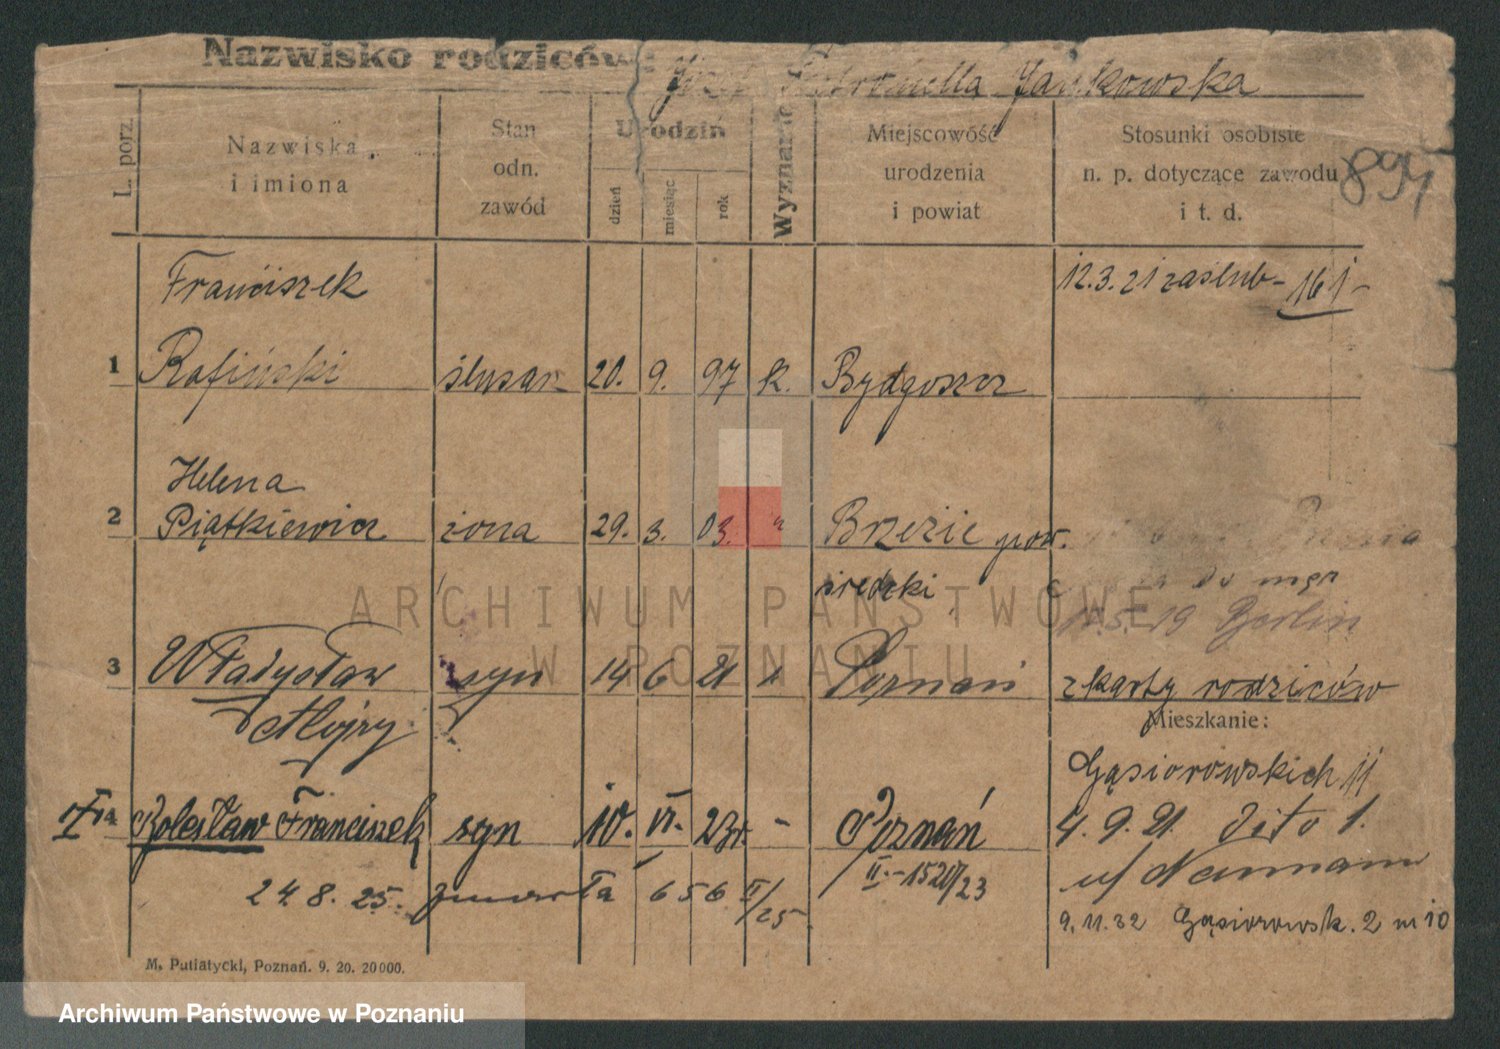 Nazwisko rodziców:
Jankowska
L. porz.
Nazwiska
i imiona
Stan
odn.
zawód
Urodzin
dzień
miesiąc
rok
Wyznanie
Miejscowość
urodzenia
i powiat
Stosunki osobiste
n. p. dotyczące zawodu
i t. d.
894
Franciszek
12.3.21 zaślub- 161-
1 Rafiński ślusarz 20. 9. 97 k. Bydgoszcz
Helena
2 Piątkiewicz żona 29. 3. 03. " Brzezie pow.
średzki
Berlin
3 Władysław syn 14 6 21 Poznań z karty rodziców
Alojzy
Mieszkanie:
Gąsiorowskich 11
4 Bolesław Franciszek syn 10. VI. 23r. - Poznań
4. 9. 21. dito 1.
II.-1520/23
u/ Neumann
24. 8. 25. 656 II/25
9.11.32 Gąsiorowsk. 2 m 10
M. Putiatycki, Poznań. 9. 20. 20000.
ARCHIWUM PAŃSTWOWE
W POZNANIU
Archiwum Państwowe w Poznaniu